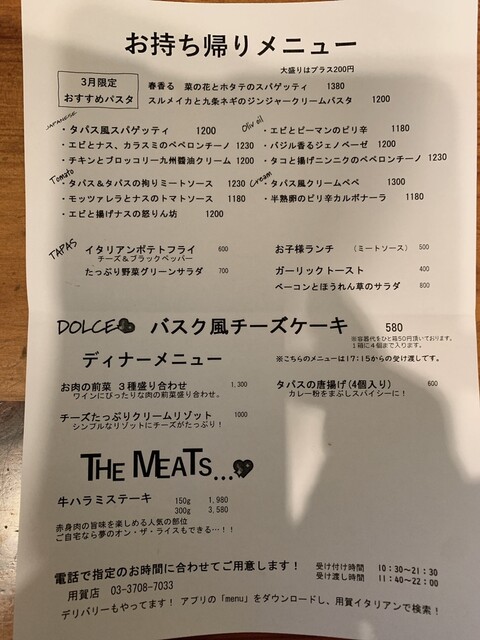 お持ち帰りメニュー
大盛りはプラス200円
3月限定
おすすめパスタ
春香る 菜の花とホタテのスパゲッティ 1380
スルメイカと九条ネギのジンジャークリームパスタ 1200
JAPANESE
・タパス風スパゲッティ 1200
・エビとナス、カラスミのペペロンチーノ 1230
・チキンとブロッコリー九州醬油クリーム 1200
Olive oil
・エビとピーマンのピリ辛 1180
・バジル香るジェノベーゼ 1200
・タコと揚げニンニクのペペロンチーノ 1230
Tomato
・タパス&タパスの拘りミートソース 1230
・モッツァレラとナスのトマトソース 1180
・エビと揚げナスの怒りん坊 1200
Cream
・タパス風クリームペペ 1300
・半熟卵のピリ辛カルボナーラ 1180
TAPAS
イタリアンポテトフライ 600
チーズ&ブラックペッパー
たっぷり野菜グリーンサラダ 700
お子様ランチ (ミートソース) 500
ガーリックトースト 400
ベーコンとほうれん草のサラダ 800
DOLCE バスク風チーズケーキ 580
※容器代をひと箱50円頂いております。
1箱に4個まで入ります。
ディナーメニュー
※こちらのメニューは17:15からの受け渡しです。
お肉の前菜 3種盛り合わせ 1,300
ワインにぴったりな肉の前菜盛り合わせ。
チーズたっぷりクリームリゾット 1000
シンプルなリゾットにチーズがたっぷり!
タパスの唐揚げ(4個入り) 600
カレー粉をまぶしスパイシーに!
THE MEATS...
牛ハラミステーキ 150g 1,980
300g 3,580
赤身肉の旨味を楽しめる人気の部位
ご自宅なら夢のオン・ザ・ライスもできる…!!
電話で指定のお時間に合わせてご用意します!
受け付け時間 10:30~21:30
受け渡し時間 11:40~22:00
用賀店 03-3708-7033
デリバリーもやってます! アプリの「menu」をダウンロードし、用賀イタリアンで検索!